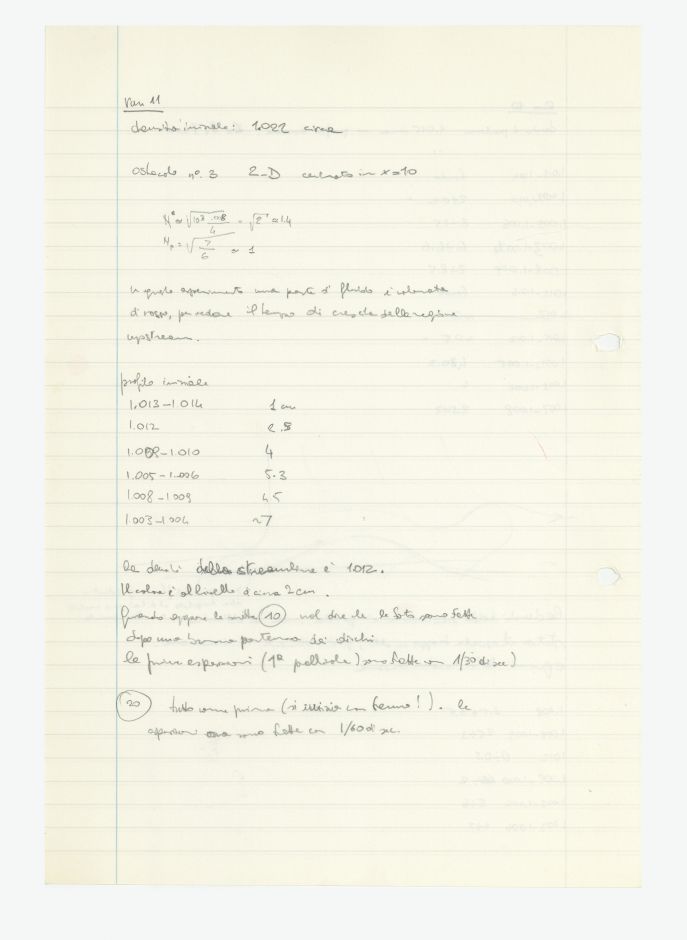 Run 11
densità iniziale: 1.022 circa
ostacolo nº. 3 2-D centrato in x=10
4 = √2 ≈ 1.4
= √7/6 ≈ 1
In questo esperimento una parte di fluido è colorata
di rosso, per vedere il tempo di crescita della regione
upstream.
profilo iniziale
1.013-1.014 1 cm
1.012
1.009-1.010 4
1.005-1.006 5.3
1.008-1.009 4.5
1.003-1.004 ~7
la densità della streamline è 1.012.
Il colore è al livello di circa 2 cm.
Quando appare la scritta 10 vuol dire che le foto sono fatte
dopo una buona partenza dei dischi
le prime espressioni (1ª pellicola) sono fatte con 1/30 di sec)
20 tutto come prima (si inizia con fermo!). le
sono fatte con 1/60 di sec.